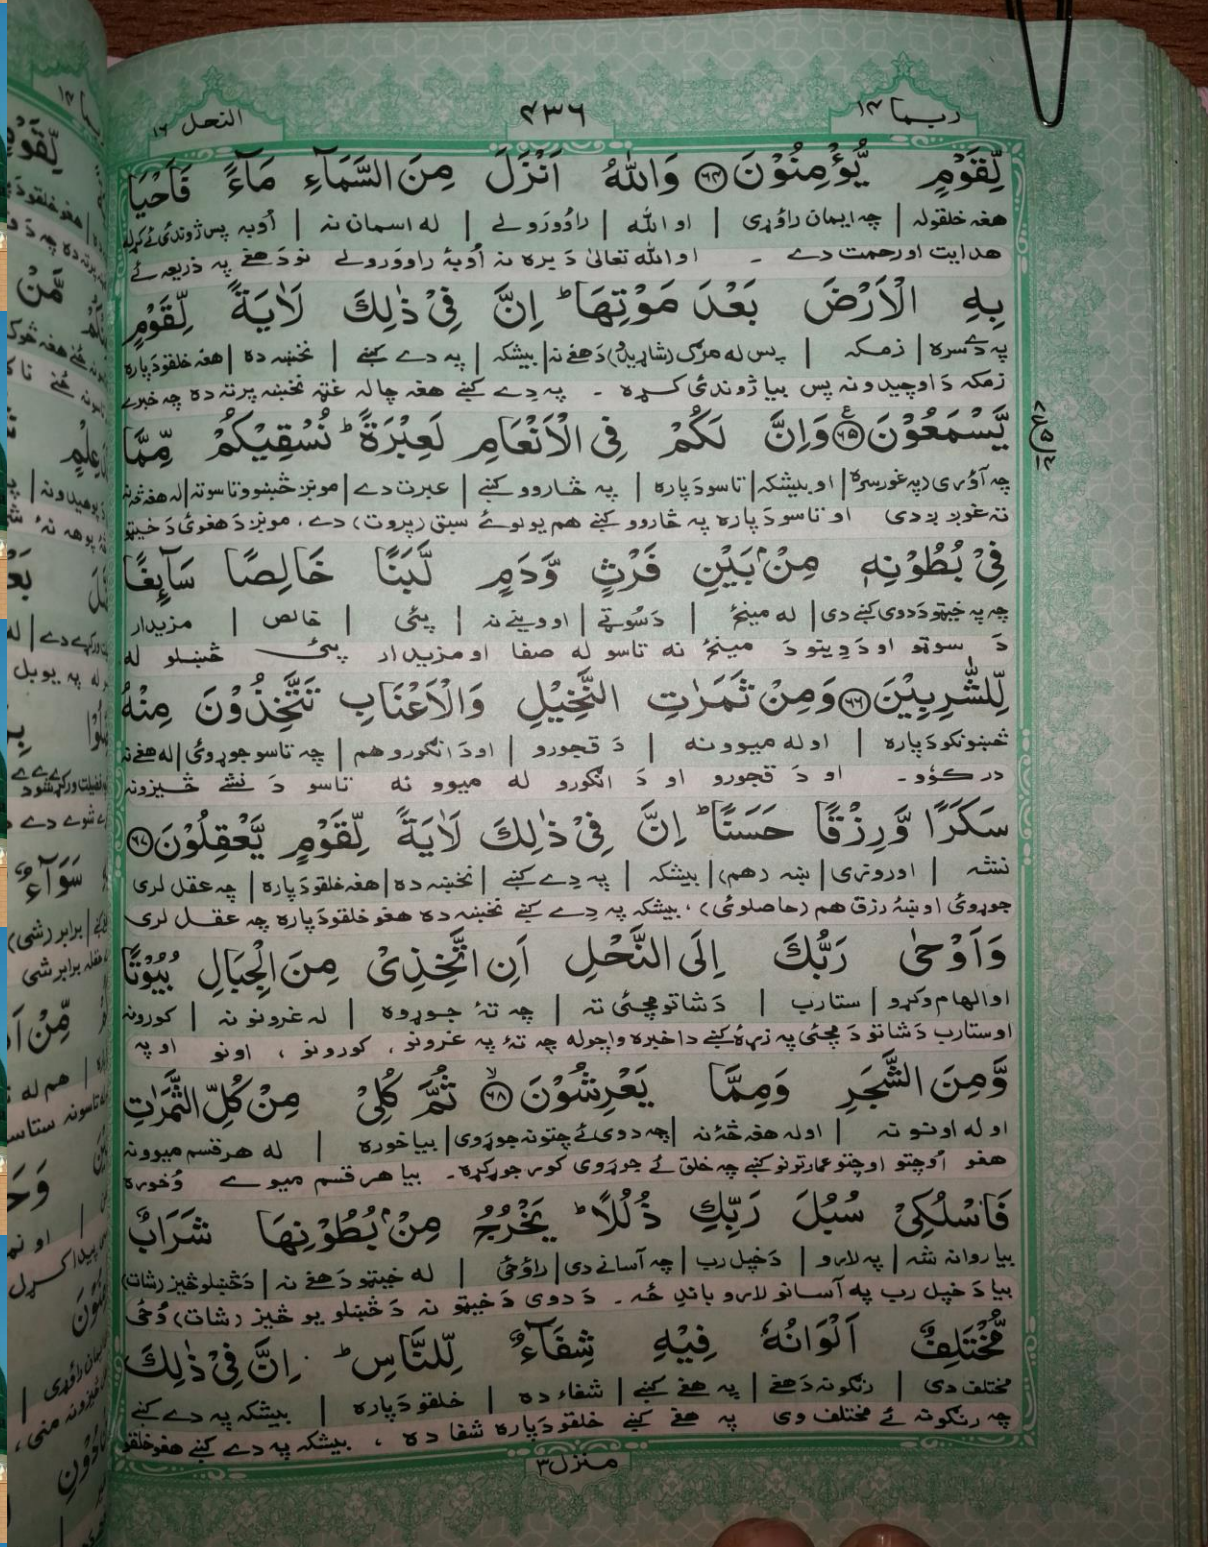 ربما ١٤
٤٣٦
النحل ١٦
لِّقَوْمٍ يُّؤْمِنُوْنَ ﴿٦٤﴾ وَاللّٰهُ اَنْزَلَ مِنَ السَّمَآءِ مَآءً فَاَحْيَا
هغه خلقوله | چه ایمان راوړی | او الله | راؤورولے | له اسمان نه | اوبه پس ژوندئ ئے کړله
هدایت اورحمت دے ۔ او الله تعالیٰ دَ بره نه اُوبهٔ راوورولے نودَ هغے په ذریعه ئے
بِهِ الْاَرْضَ بَعْدَ مَوْتِهَا ؕ اِنَّ فِیْ ذٰلِكَ لَاٰيَةً لِّقَوْمٍ
په دے سره | زمکه | پس له مرګ (شاړیدو) دَهغے نه | بیشکه | په دے کښے | نخښه ده | هغه خلقودَپاره
زمکه دَ اوچیدو نه پس بیا ژوندئ کړه ۔ په دِے کښے هغه چاله غټه نخښه پرته ده چه خبرے
يَّسْمَعُوْنَ ﴿٦٥﴾ وَاِنَّ لَكُمْ فِی الْاَنْعَامِ لَعِبْرَةً ؕ نُسْقِيْكُمْ مِّمَّا
چه آؤری (په غورسره) | اوبیشکه | تاسودَپاره | په څاروو کښے | عبرت دے | مونږ څښوو تاسوته | له هغه څه نه
ته غوږ ږدی او تاسو دَپاره په څاروو کښے هم یولوئے سبق (پروت) دے، مونږ دَ هغوئ دَ خیټو
فِیْ بُطُوْنِهٖ مِنْۢ بَيْنِ فَرْثٍ وَّدَمٍ لَّبَنًا خَالِصًا سَآىِٕغًا
چه په خیټو دَ دوی کښے دی | له مینځ | دَ سُوټے | او وینے نه | پئی | خالص | مزیدار
دَ سوټو او دَ وینو دَ مینځ نه تاسو له صفا او مزیدار پئی څښلو له
لِّلشّٰرِبِيْنَ ﴿٦٦﴾ وَمِنْ ثَمَرٰتِ النَّخِيْلِ وَالْاَعْنَابِ تَتَّخِذُوْنَ مِنْهُ
څښونکو دَپاره | او له میوو نه | دَ قجورو | او دَ انګورو هم | چه تاسو جوړوئ | له هغے نه
درکوو۔ او دَ قجورو او دَ انګورو له میوو نه تاسو دَ نشے څیزونه
سَكَرًا وَّرِزْقًا حَسَنًا ؕ اِنَّ فِیْ ذٰلِكَ لَاٰيَةً لِّقَوْمٍ يَّعْقِلُوْنَ ﴿٦٧﴾
نشه | اوروزی | ښه (هم) | بیشکه | په دِے کښے | نخښه ده | هغه خلقودَپاره | چه عقل لری
جوړوئ او ښهٔ رزق هم (حاصلوئ)، بیشکه په دِے کښے نخښه ده هغو خلقودَپاره چه عقل لری
وَاَوْحٰی رَبُّكَ اِلَی النَّحْلِ اَنِ اتَّخِذِیْ مِنَ الْجِبَالِ بُيُوْتًا
اوالهام وکړو | ستارب | دَ شاتو مچئ ته | چه تهٔ جوړوه | له غرونو نه | کورونه
اوستارب دَ شاتو دَ مچئ په زړهٔ کښے داخبره واچوله چه تهٔ په غرونو، کورونو، اونو اوپه
وَّمِنَ الشَّجَرِ وَمِمَّا يَعْرِشُوْنَ ﴿٦٨﴾ ثُمَّ كُلِیْ مِنْ كُلِّ الثَّمَرٰتِ
او له اونو نه | اوله هغه څهٔ نه | چه دوی ئے چتونه جوړوی | بیا خوره | له هرقسم میوونه
هغو اُوچتو اوچتو عمارتونو کښے چه خلق ئے جوړوی کور جوړکړه۔ بیا هر قسم میوے وُخوره
فَاسْلُكِیْ سُبُلَ رَبِّكِ ذُلُلًا ؕ يَخْرُجُ مِنْۢ بُطُوْنِهَا شَرَابٌ
بیاروانه شه | په لارو | دَخپل رب | چه آسانے دی | راؤځی | له خیټو دَ هغے نه | دَڅښلو څیز (شات)
بیا دَ خپل رب په آسانو لارو باندِ ځه۔ دَ دوی دَ خیټو نه دَ څښلو یو څیز (شات) وُځی
مُّخْتَلِفٌ اَلْوَانُهٗ فِيْهِ شِفَآءٌ لِّلنَّاسِ ؕ اِنَّ فِیْ ذٰلِكَ
مختلف دی | رنګونه دَهغے | په هغے کښے | شفاء ده | خلقو دَپاره | بیشکه په دے کښے
چه رنګونه ئے مختلف وی په هغے کښے خلقو دَپاره شفا ده، بیشکه په دے کښے هغو خلقو
منزل ٣